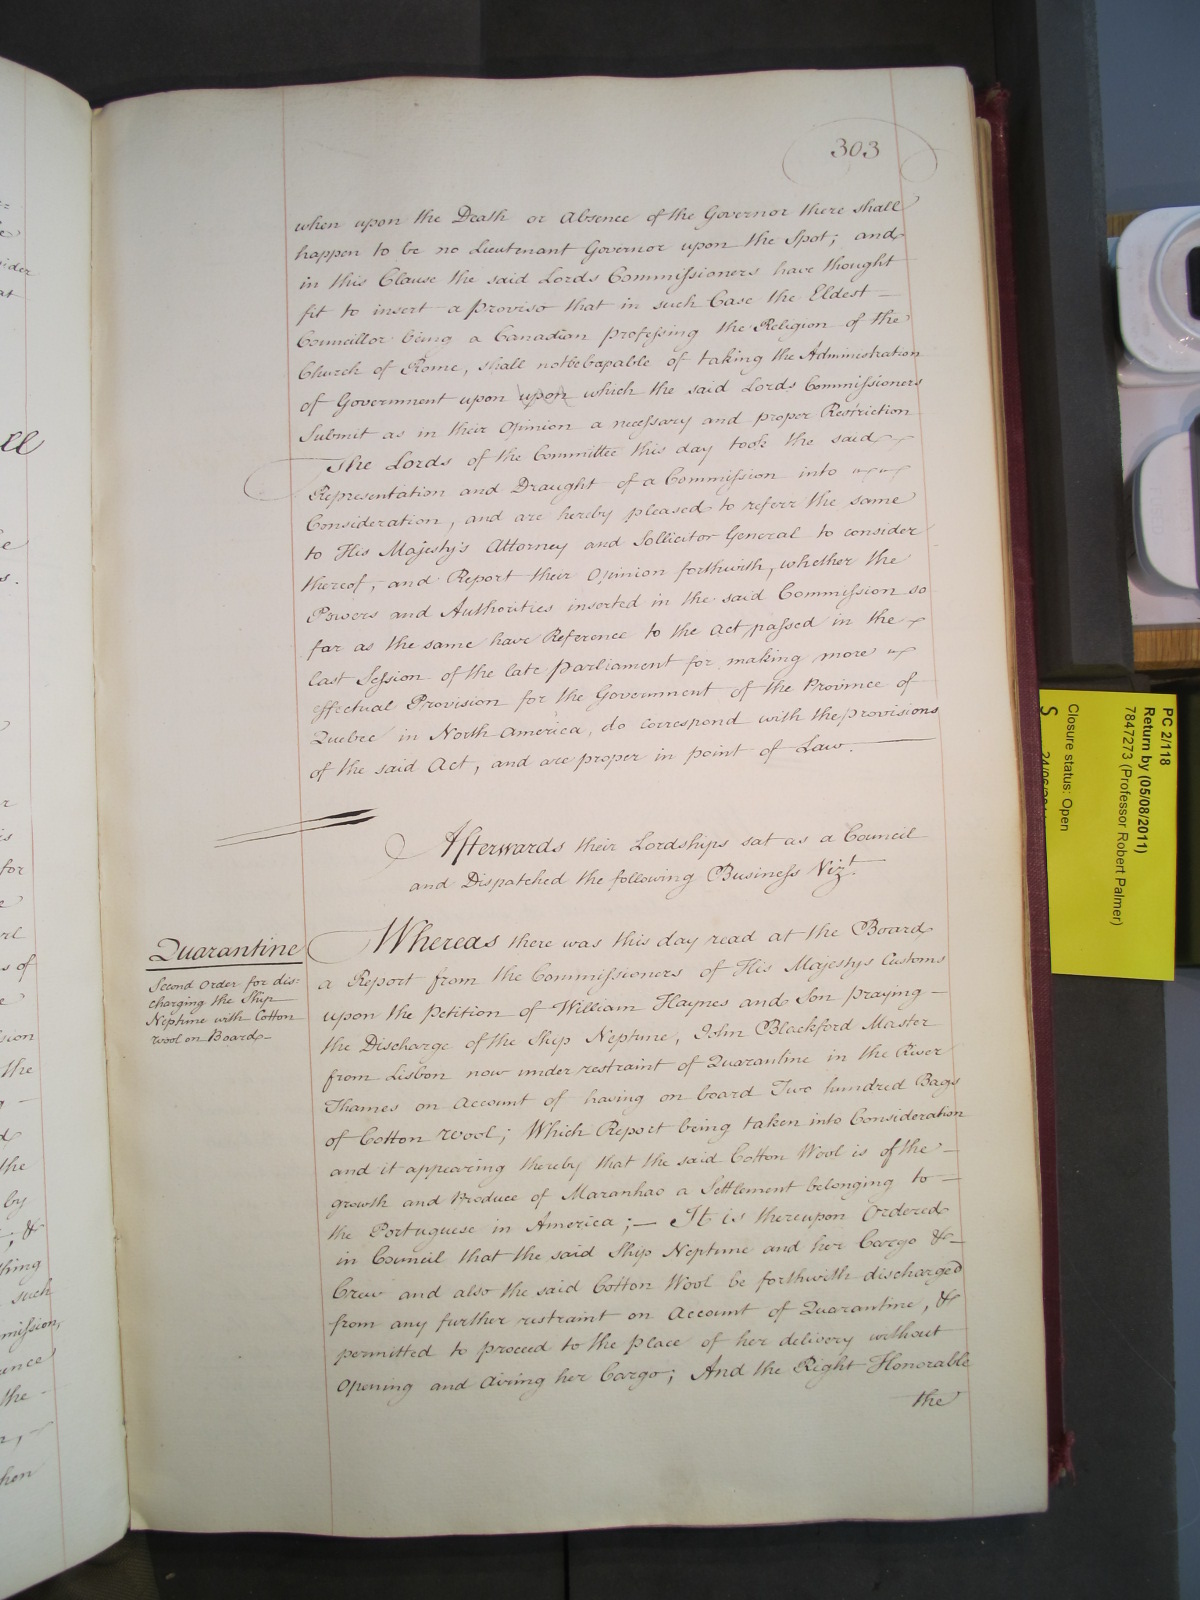 303
when upon the Death or Absence of the Governor there shall
happen to be no Lieutenant Governor upon the Spot; and
in this Clause the said Lords Commissioners have thought
fit to insert a Proviso that in such Case the Eldest —
Councillor being a Canadian professing the Religion of the
Church of Rome, shall not be capable of taking the Administration
of Government upon upon which the said Lords Commissioners
Submit as in their Opinion a necessary and proper Restriction
The Lords of the Committee this day took the said
Representation and Draught of a Commission into
Consideration, and are hereby pleased to referr the same
to His Majesty's Attorney and Sollicitor General to consider
thereof, and Report their Opinion forthwith, whether the
Powers and Authorities inserted in the said Commission so
far as the same have Reference to the Act passed in the
last Session of the late Parliament for making more
effectual Provision for the Government of the Province of
Quebec in North America, do correspond with the provisions
of the said Act, and are proper in point of Law. —
Afterwards their Lordships sat as a Council
and Dispatched the following Business Vizt.
Quarantine
Second Order for dis-
charging the Ship
Neptune with Cotton
wool on Board —
Whereas there was this day read at the Board
a Report from the Commissioners of His Majestys Customs
upon the Petition of William Haynes and Son praying —
the Discharge of the Ship Neptune, John Blackford Master
from Lisbon now under restraint of Quarantine in the River
Thames on Account of having on board Two hundred Bags
of Cotton Wool; Which Report being taken into Consideration
and it appearing thereby that the said Cotton Wool is of the —
growth and Produce of Maranhao a Settlement belonging to —
the Portuguese in America; — It is thereupon Ordered
in Council that the said Ship Neptune and her Cargo & —
Crew and also the said Cotton Wool be forthwith discharged
from any further restraint on Account of Quarantine, &
permitted to proceed to the place of her delivery without
Opening and Airing her Cargo; And the Right Honorable
the
PC 2/118
Return by (05/08/2011)
7847273 (Professor Robert Palmer)
Closure status: Open
S